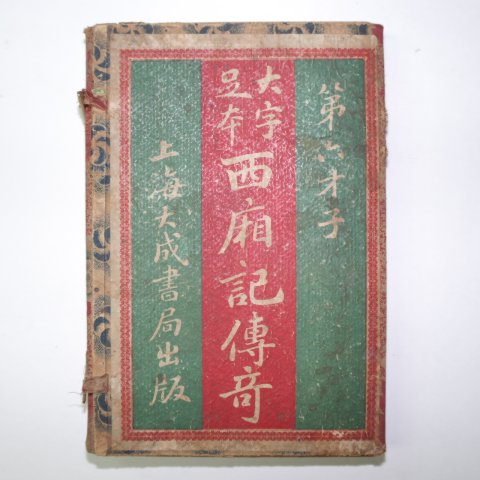 第六才子
大字
足本
西廂記傳奇
上海大成書局出版